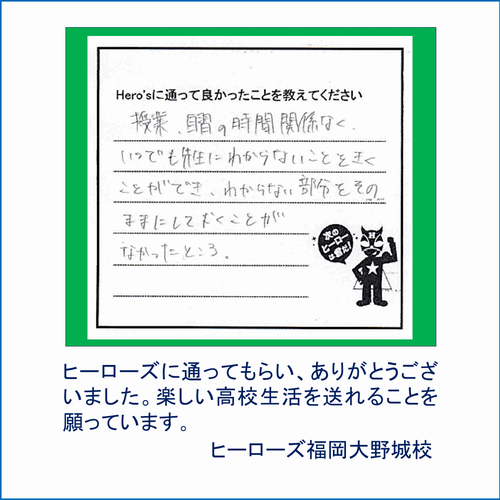 Hero'sに通って良かったことを教えてください
授業、自習の時間関係なく、
いつでも先生にわからないことをきく
ことができ、わからない部分をその
ままにしておくことが
なかったところ。
次の
ヒーロー
は君だ!
H
ヒーローズに通ってもらい、ありがとうござ
いました。楽しい高校生活を送れることを
願っています。
ヒーローズ福岡大野城校